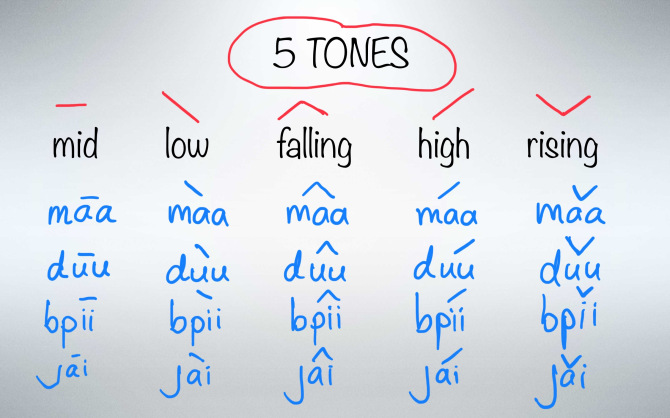 5 TONES
mid low falling high rising
māa màa mâa máa mǎa
dūu dùu dûu dúu dǔu
bpīi bpìi bpîi bpíi bpǐi
jāi jài jâi jái jǎi